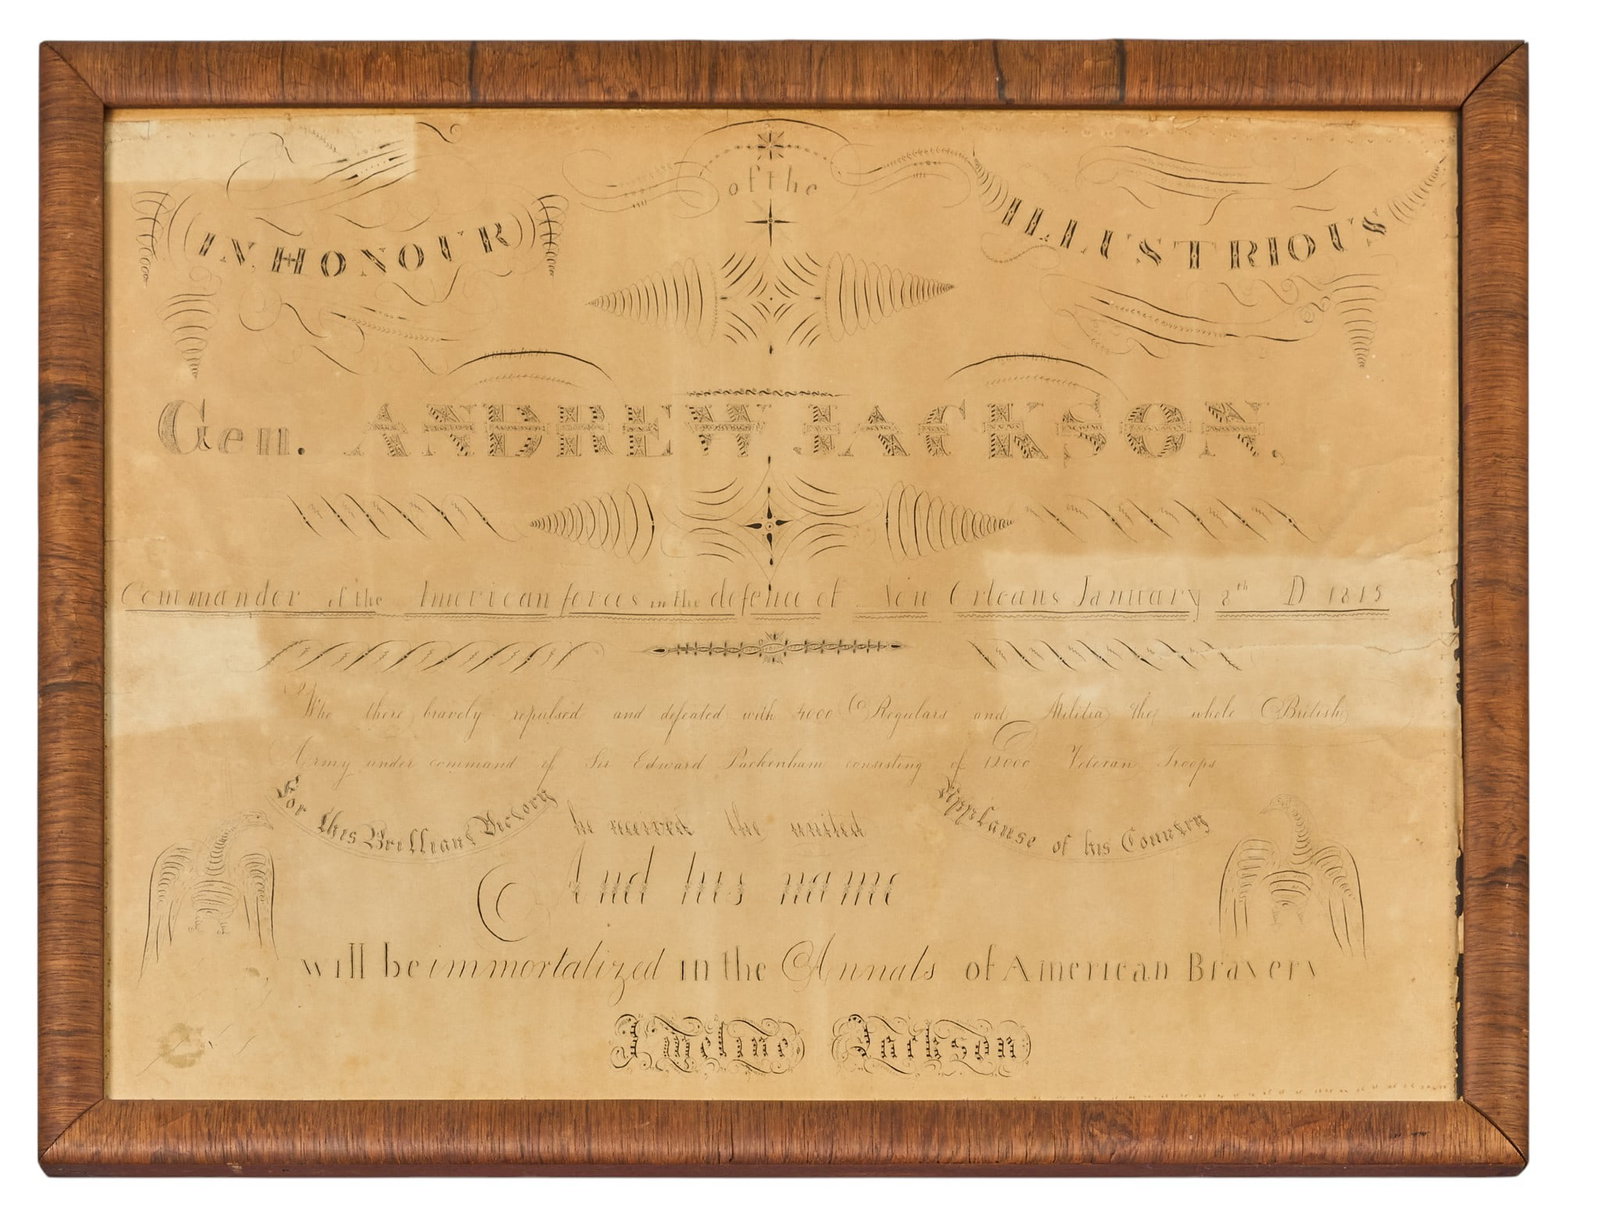 IN HONOUR of the ILLUSTRIOUS
Gen. ANDREW JACKSON,
Commander of the American forces in the defence of New Orleans January 8th D 1815
Who there bravely repulsed and defeated with 4000 Regulars and Militia the whole British
Army under command of Sir Edward Packenham consisting of 12000 Veteran Troops
For this Brilliant Victory he received the united Applause of his Country
And his name
will be immortalized in the Annals of American Bravery
Jackson